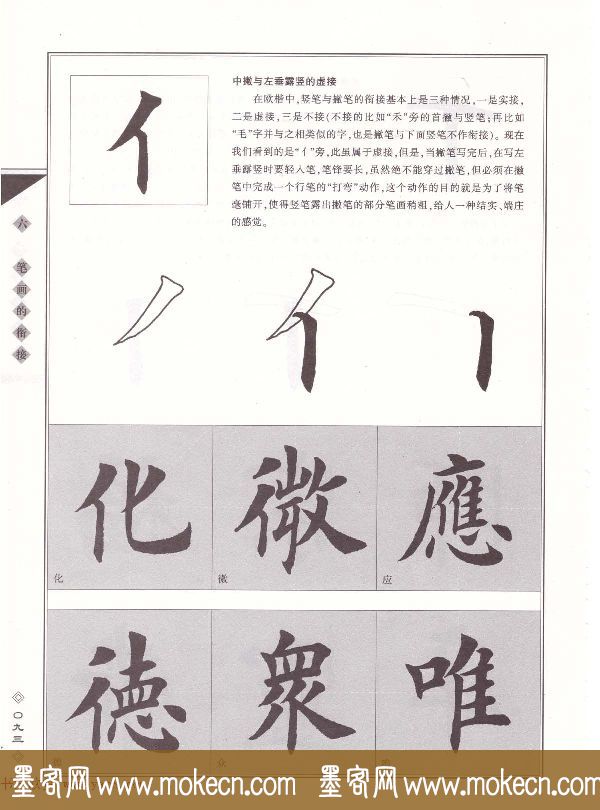 中撇与左垂露竖的虚接
亻
在欧楷中,竖笔与撇笔的衔接基本上是三种情况,一是实接,
二是虚接,三是不接(不接的比如“禾”旁的首撇与竖笔;再比如
“毛”字并与之相类似的字,也是撇笔与下面竖笔不作衔接)。现在
我们看到的是“亻”旁,此虽属于虚接,但是,当撇笔写完后,在写左
垂露竖时要轻入笔,笔锋要长,虽然绝不能穿过撇笔,但必须在撇
笔中完成一个行笔的“打弯”动作,这个动作的目的就是为了将笔
毫铺开,使得竖笔露出撇笔的部分笔画稍粗,给人一种结实、端庄
的感觉。
六 笔画的衔接
亻
化 微 應
化 微 应
德 眾 唯
众
〇九三
墨客网 www.mokecn.com 墨客网 www.mokecn.com